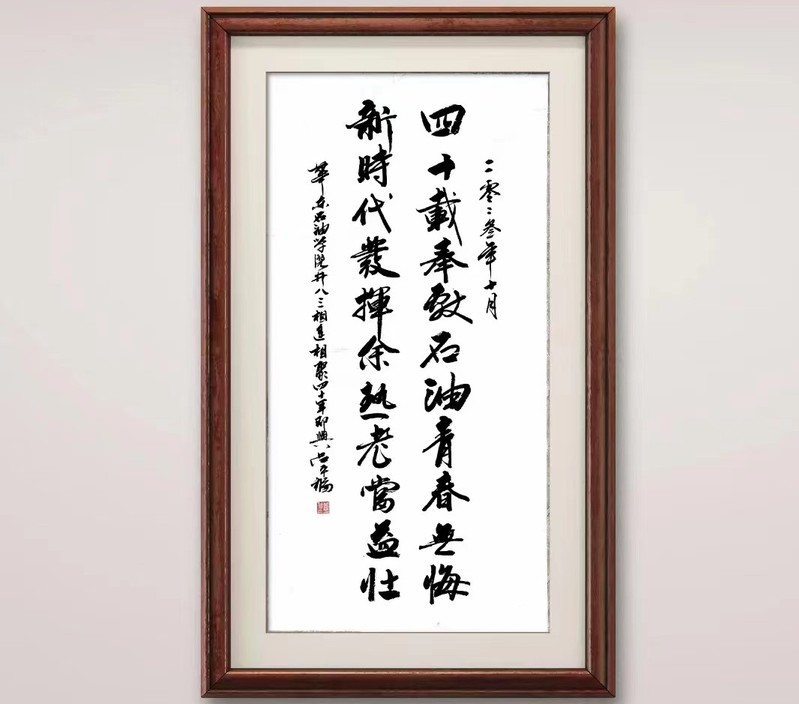 二零二叁年十月
四十載奉獻石油青春無悔
新時代發揮余熱老當益壯
華东石油学院开八三相逢相聚四十年即興